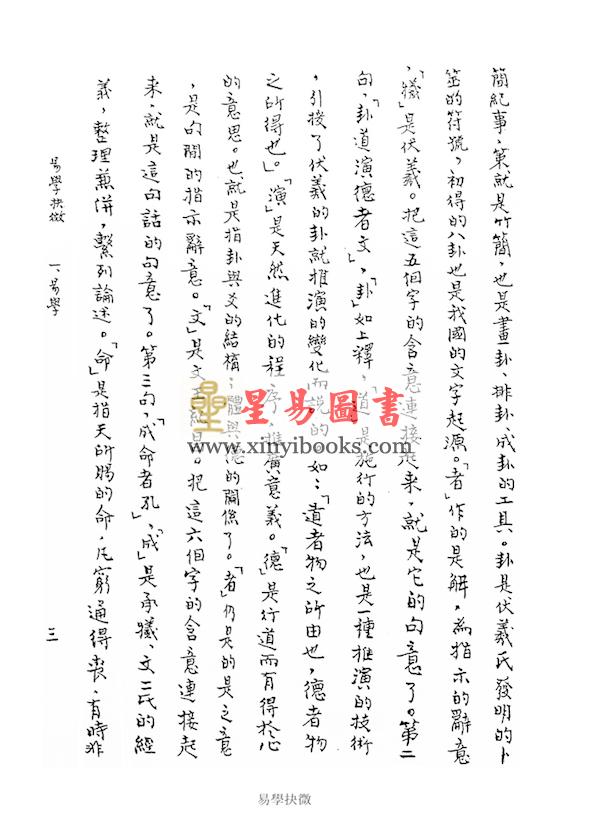 簡紀事，策就是竹簡，也是畫卦、排卦、成卦的工具。卦是伏羲氏發明的卜
筮的符號，初得的八卦也是我國的文字起源。「者」作的是解，為指示的辭意
，「犧」是伏羲。把這五個字的含意連接起來，就是它的句意了。第二
句，「卦道演德者文」，「卦」如上釋，「道」是施行的方法，也是一種推演的技術
，引接了伏羲的卦就推演的變化而說的。如：「道者物之所由也，德者物
之所得也」。「演」是天然進化的程序，推廣意義。「德」是行道而有得於心
的意思。也就是指卦與爻的結構；體與德的關係了。「者」仍是的是之意
，是句間的指示辭意。「文」是文王紀昌。把這六個字的含意連接起
來，就是這句話的句意了。第三句，「成命者孔」，「成」是承犧、文二氏的經
義，整理兼併，繫列論述。「命」是指天所賜的命，凡窮通得喪，有時非
易學抉微 一、易學 三
星易圖書
www.xinyibooks.com
易學抉微